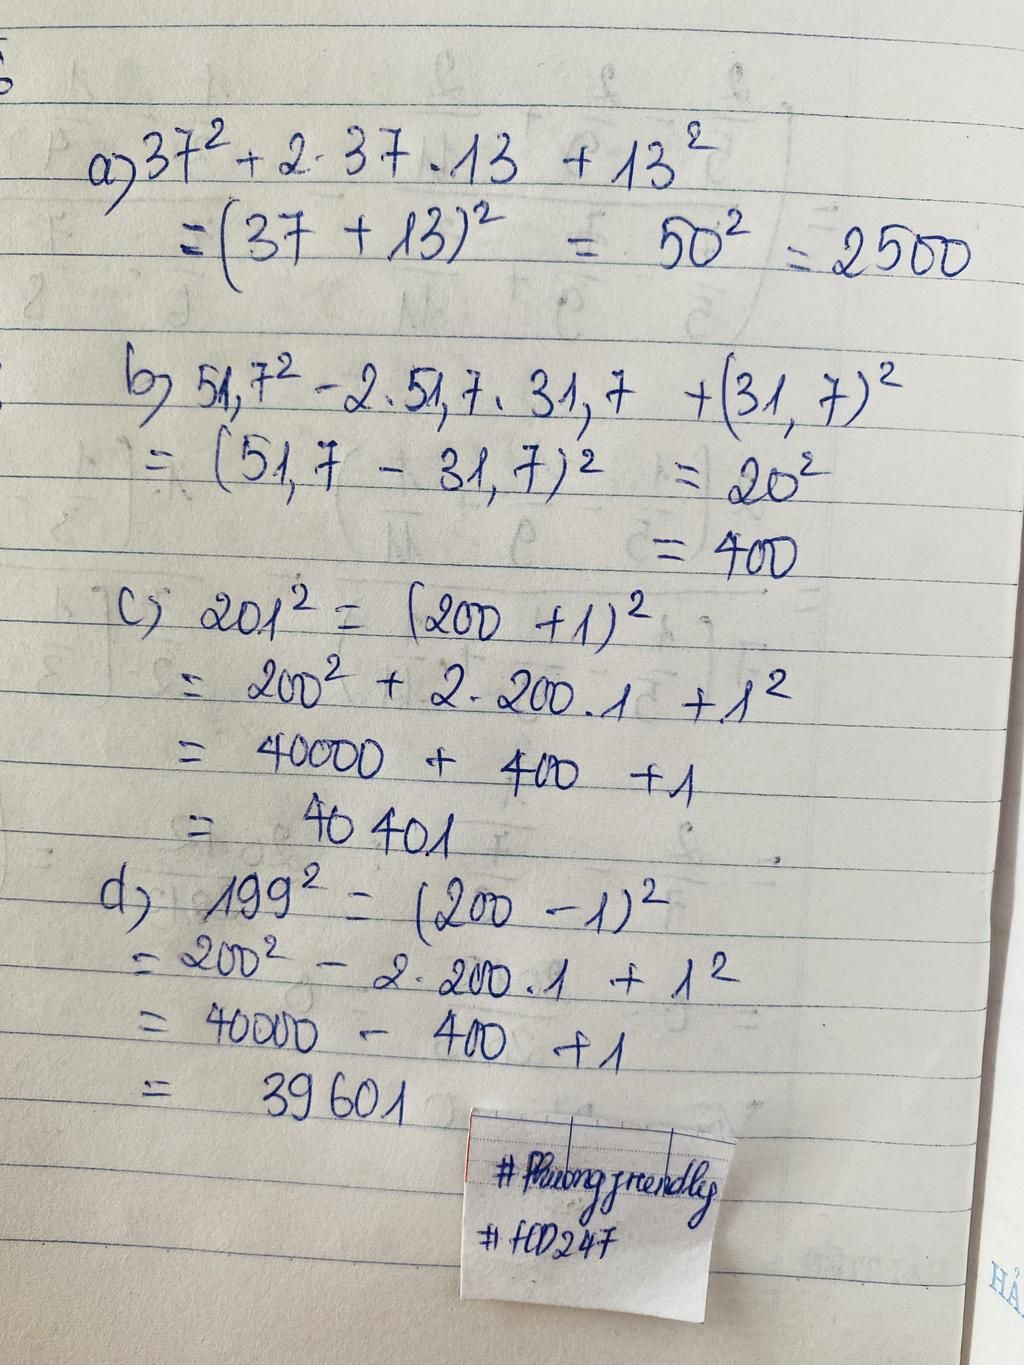 a) 37² + 2. 37 . 13 + 13²
= (37 + 13)² = 50² = 2500
b) 51,7² - 2. 51,7. 31,7 + (31,7)²
= (51,7 - 31,7)² = 20²
= 400
c) 201² = (200 + 1)²
= 200² + 2. 200 . 1 + 1²
= 40000 + 400 + 1
= 40 401
d) 199² = (200 - 1)²
= 200² - 2. 200 . 1 + 1²
= 40000 - 400 + 1
= 39 601
#HD247
HẢ